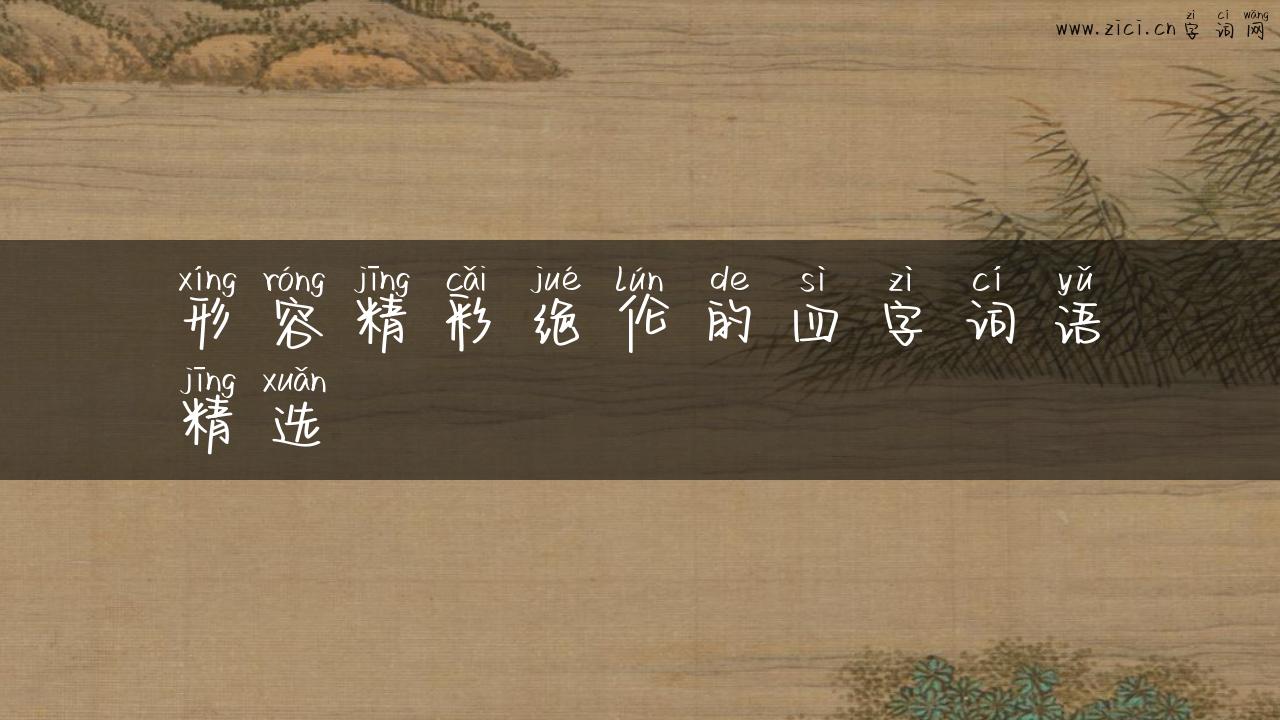 zì cí wǎng
www.zici.cn 字词网
xíng róng jīng cǎi jué lún de sì zì cí yǔ
形容精彩绝伦的四字词语
jīng xuǎn
精选